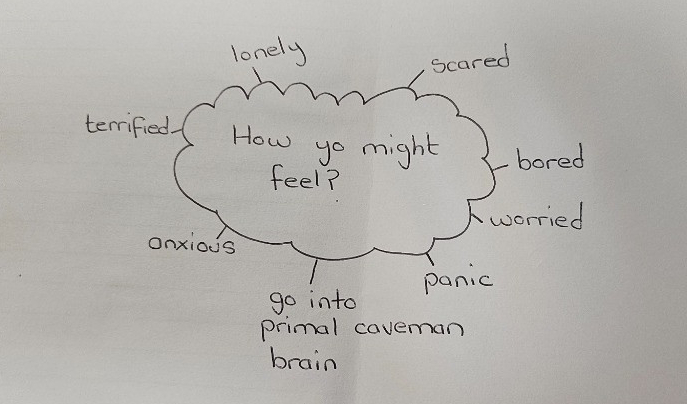 lonely
scared
terrified
How yo might
feel?
bored
worried
anxious
panic
go into
primal caveman
brain